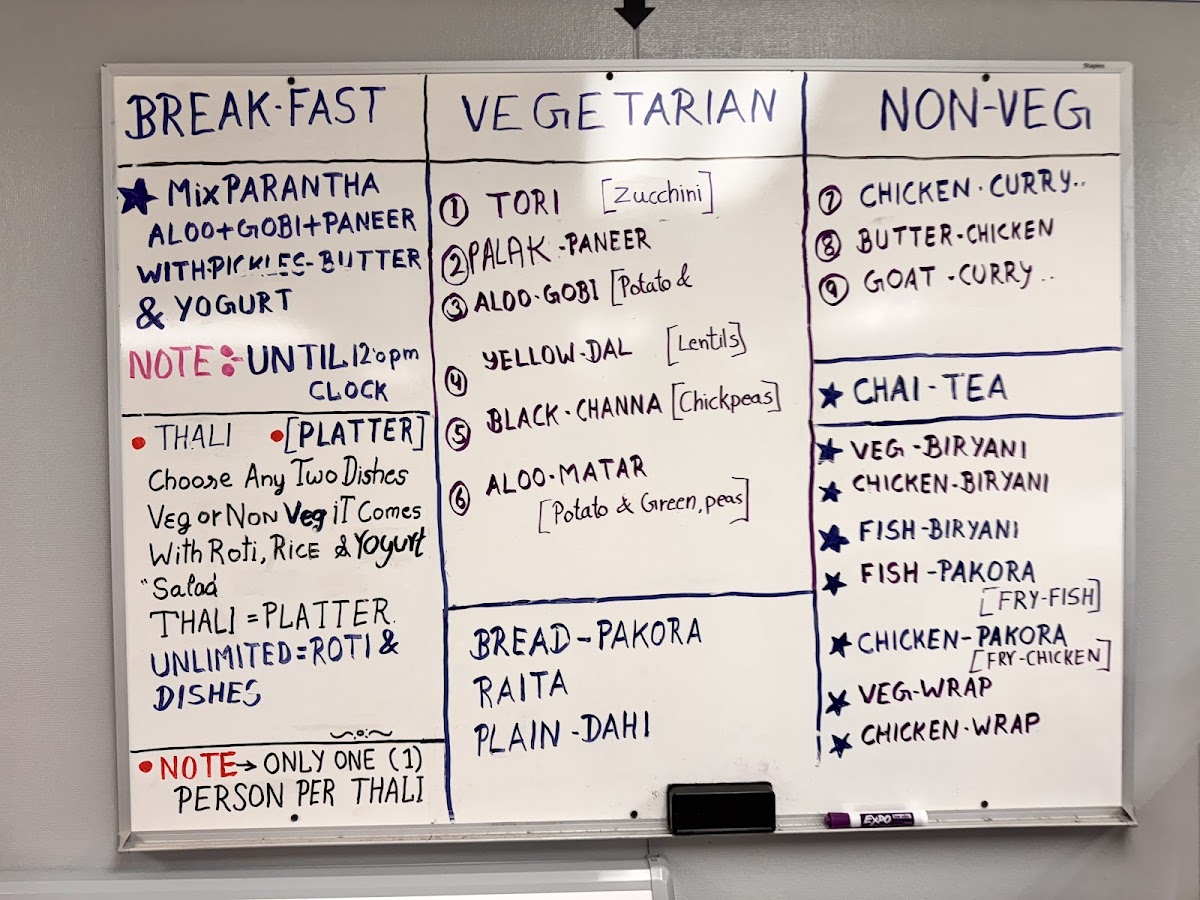 Staples
BREAK-FAST
★ Mix PARANTHA
ALOO+GOBI+PANEER
WITH-PICKLES-BUTTER
& YOGURT
NOTE:- UNTIL 12'opm
CLOCK
• THALI • [PLATTER]
Choose Any Two Dishes
Veg or Non Veg iT Comes
With Roti, RICE & Yogurt
"Salad
THALI = PLATTER.
UNLIMITED = ROTI &
DISHES
• NOTE → ONLY ONE (1)
PERSON PER THALI
VEGETARIAN
① TORI [Zucchini]
② PALAK-PANEER
③ ALOO-GOBI [Potato &
④ YELLOW-DAL [Lentils]
⑤ BLACK-CHANNA [Chickpeas]
⑥ ALOO-MATAR
[Potato & Green, peas]
BREAD-PAKORA
RAITA
PLAIN-DAHI
NON-VEG
⑦ CHICKEN-CURRY..
⑧ BUTTER-CHICKEN
⑨ GOAT-CURRY..
★ CHAI-TEA
★ VEG-BIRYANI
★ CHICKEN-BIRYANI
★ FISH-BIRYANI
★ FISH-PAKORA
[FRY-FISH]
★ CHICKEN-PAKORA
[FRY-CHICKEN]
★ VEG-WRAP
★ CHICKEN-WRAP
EXPO